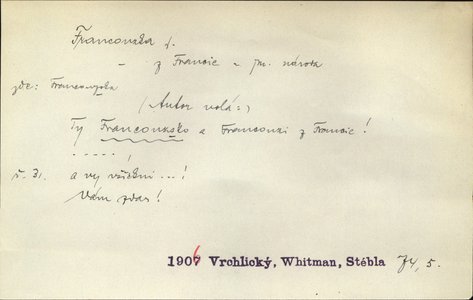 Francouzka f.
– z Francie – jm. národa
zde: Francouzka
(Autor volá:)
Ty Francouzsko a Francouzi z Francie!
. . . . . !
ř. 31. a vy všichni ...!
Vám zdar!
1906 Vrchlický, Whitman, Stébla 74, 5.